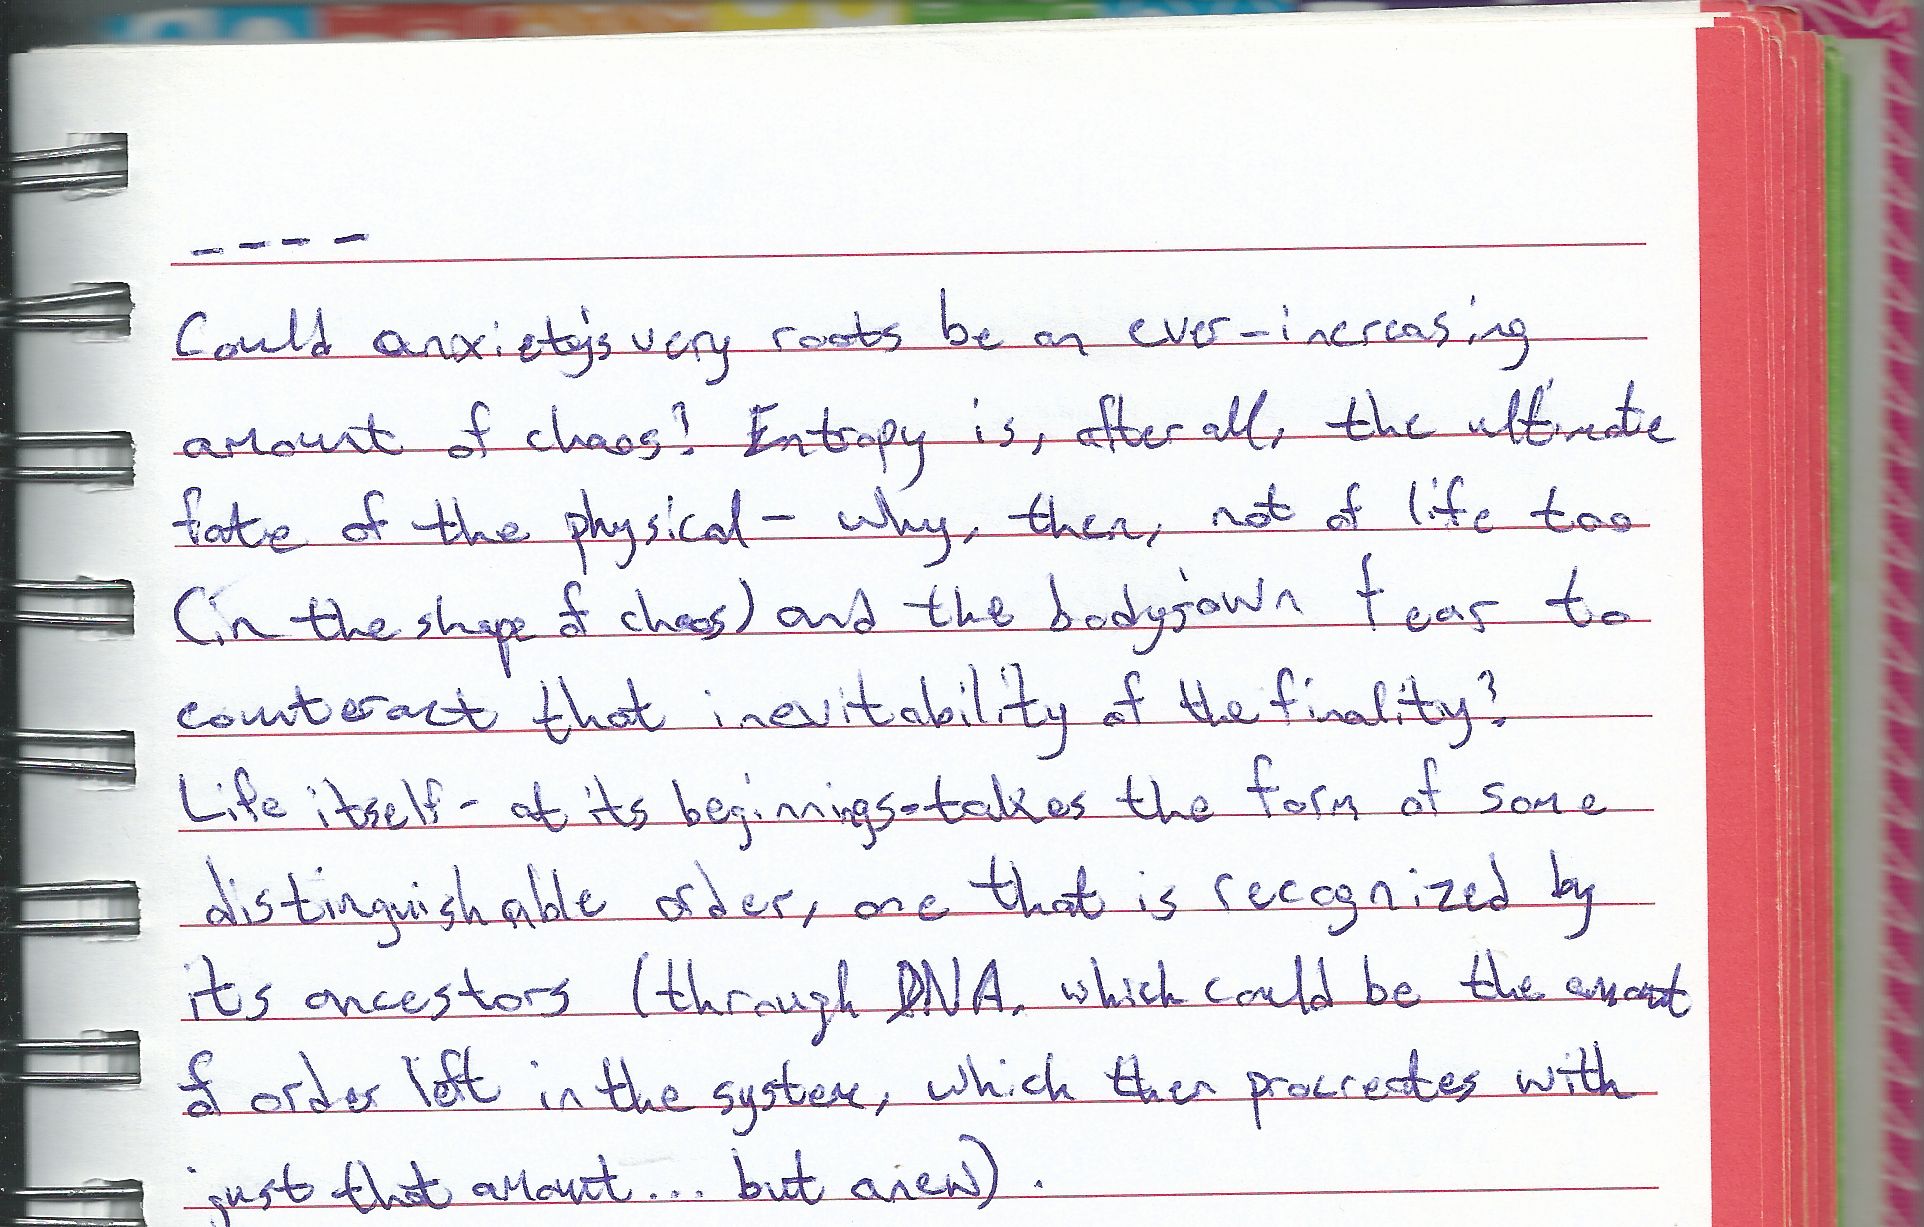 ----
Could anxiety's very roots be an ever-increasing
amount of chaos? Entropy is, after all, the ultimate
fate of the physical - why, then, not of life too
(in the shape of chaos) and the body's own fear to
counteract that inevitability of the finality?
Life itself - at its beginnings - takes the form of some
distinguishable order, one that is recognized by
its ancestors (through DNA, which could be the amount
of order left in the system, which then procreates with
just that amount... but anew).